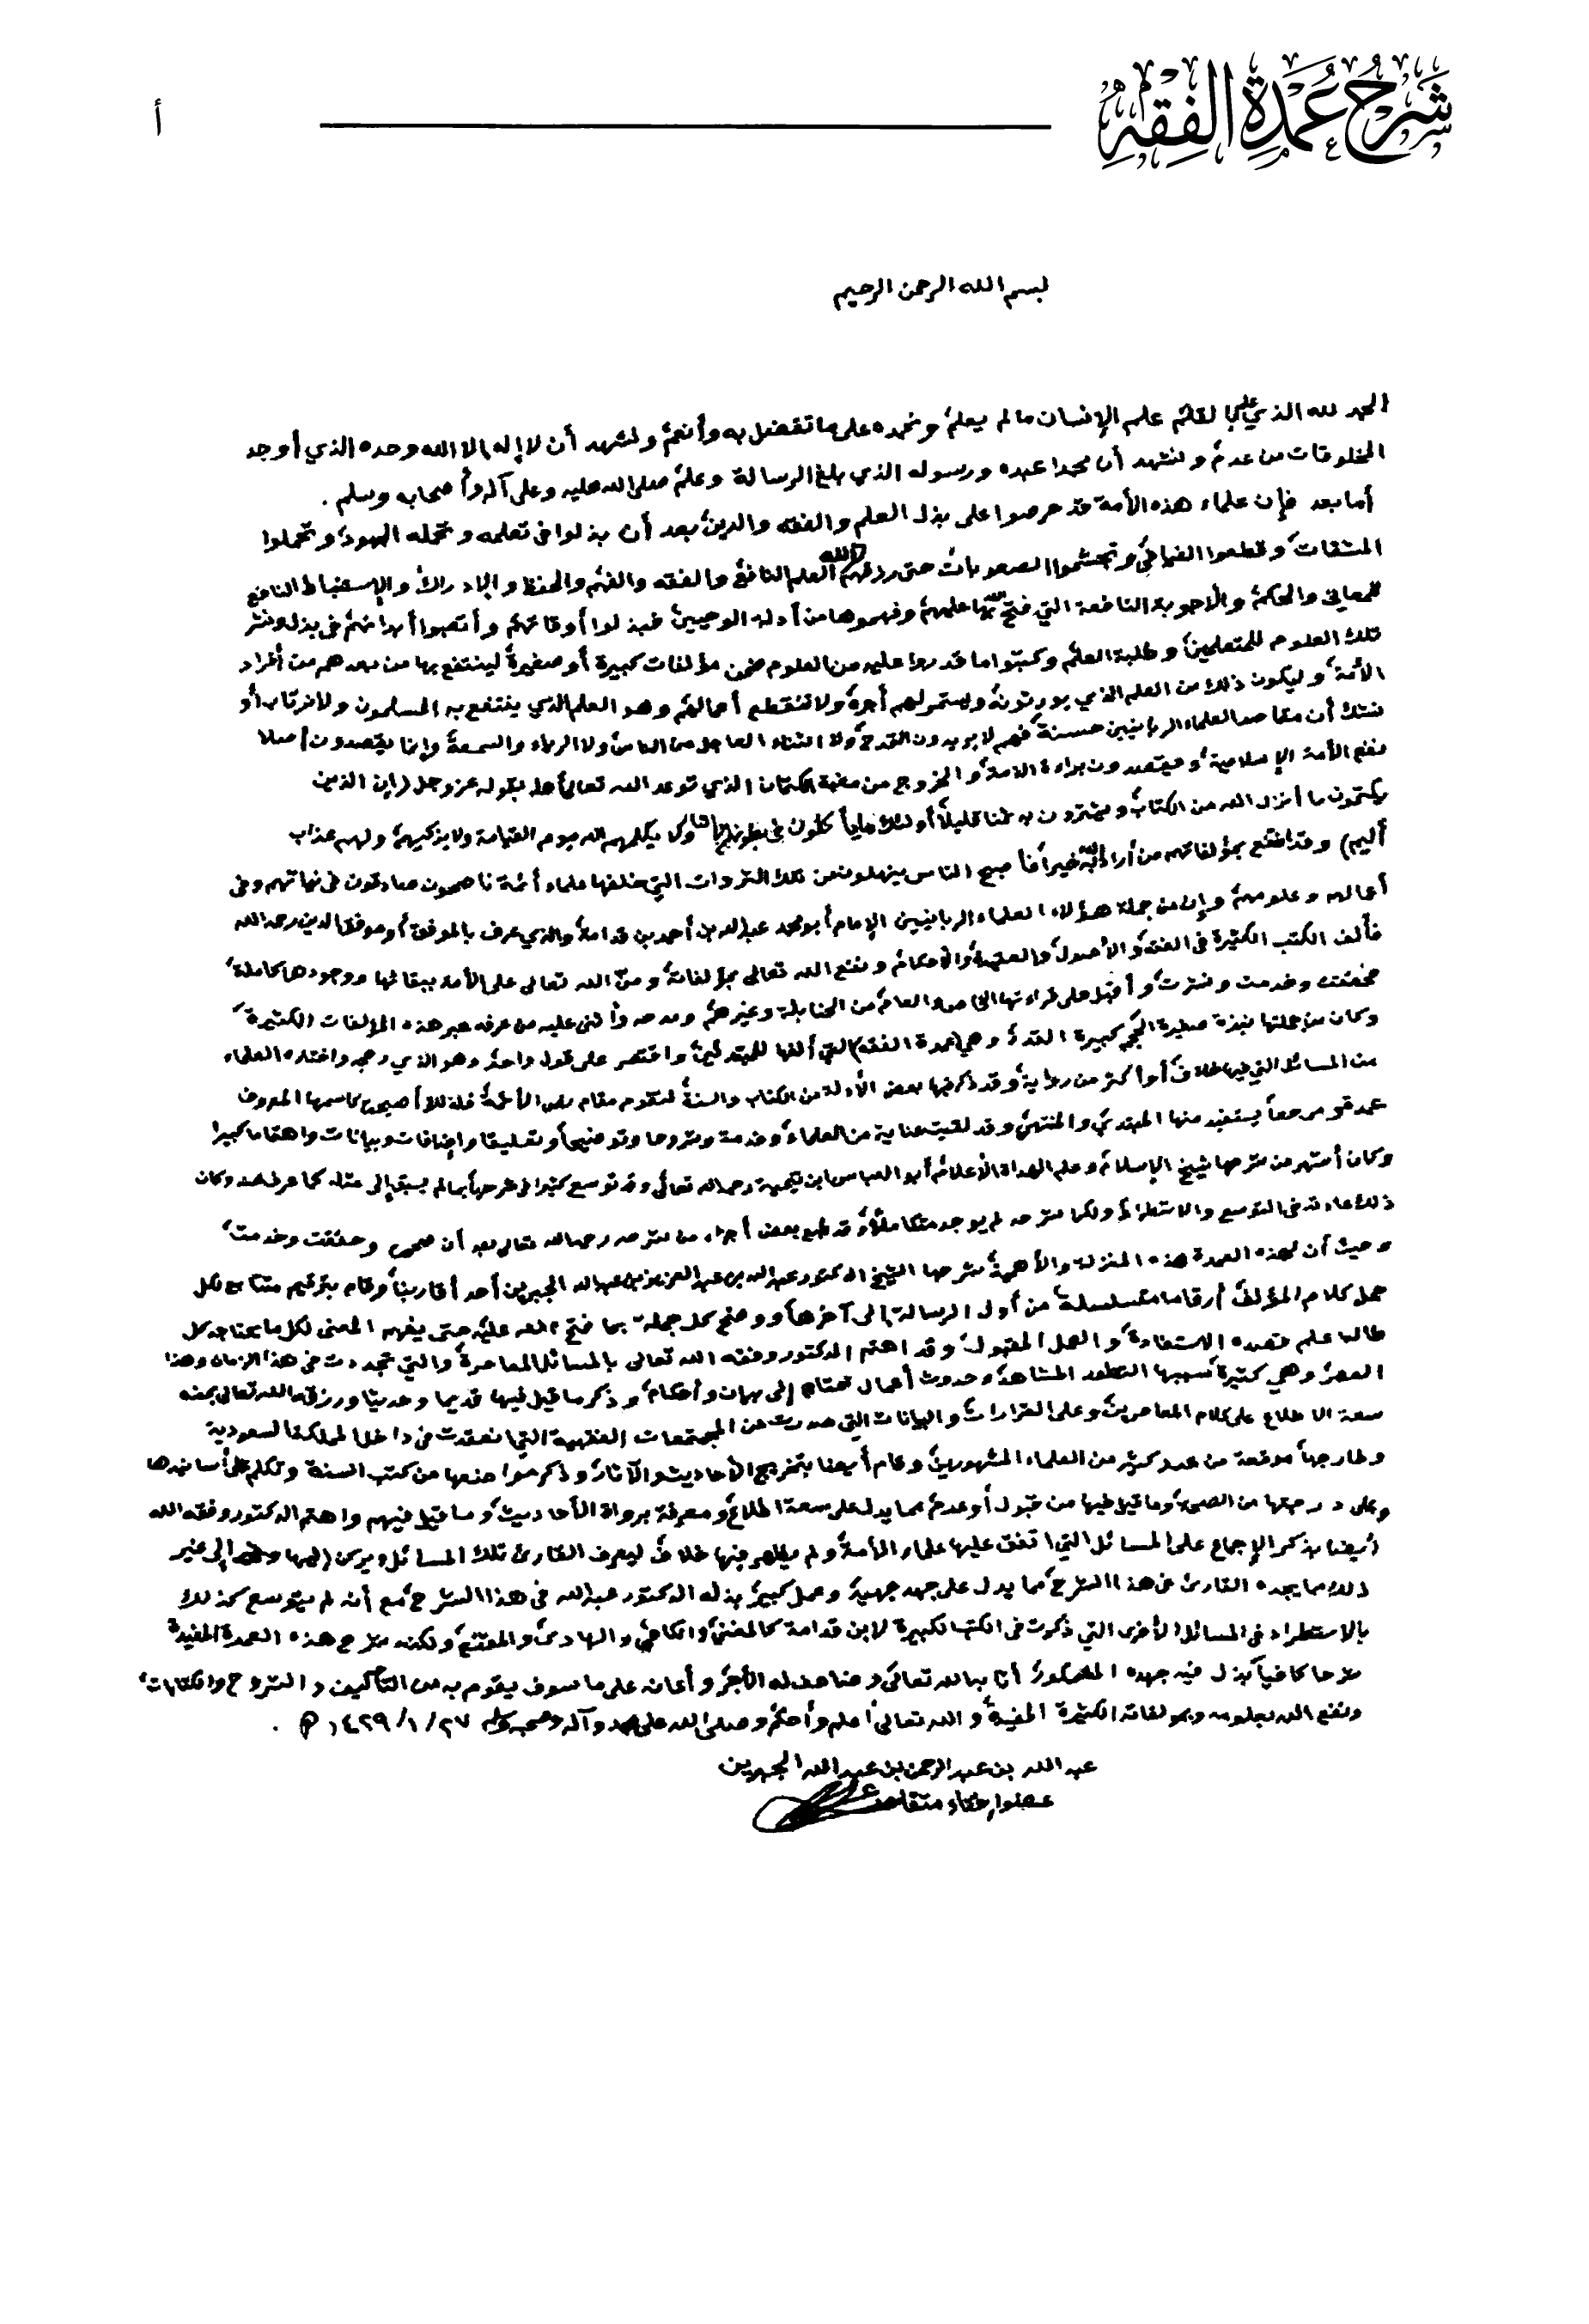 شَرْحُ عُمْدَةِ الفِقْهِ
أ
بسم الله الرحمن الرحيم
الحمد لله الذي علم بالقلم علم الإنسان ما لم يعلم، ونحمده على ما تفضل به وأنعم، ونشهد أن لا إله إلا الله وحده الذي أوجد
المخلوقات من عدم، ونشهد أن محمدا عبده ورسوله الذي بلغ الرسالة وعلم صلى الله عليه وعلى آله وأصحابه وسلم.
أما بعد فإن علماء هذه الأمة قد حرصوا على بذل العلم والفقه والدين، بعد أن بذلوا في تعلمه وتحمله الجهود، وتحملوا
المشقات، وقطعوا الفيافي، وتجشموا الصعوبات، حتى رزقهم الله العلم النافع، والفقه والفهم والحفظ والإدراك، والإستنباط النافع
للمعاني والحكم، والأجوبة النافعة التي فتح الله بها عليهم، وفهموها من أدلة الوحيين، فبذلوا أوقاتهم، وأتعبوا أبدانهم، في بذل ونشر
تلك العلوم للمتعلمين، وطلبة العلم، وكتبوا ما قدروا عليه من العلوم ضمن مؤلفات كبيرة أو صغيرة، لينتفع بها من بعدهم من أفراد
الأمة، وليكون ذلك من العلم الذي يورثونه، ويستمر لهم أجره، ولا تنقطع أعمالهم، وهو العلم الذي ينتفع به المسلمون ولا نرتاب أو
نشك أن مقاصد العلماء الربانيين حسنة، فهم لا يريدون المدح، ولا الثناء العاجل من الناس، ولا الرياء والسمعة، وإنما يقصدون أصلا
نفع الأمة الإسلامية، ويقصدون براءة الذمة، والخروج من مغبة الكتمان الذي توعد الله تعالى أهله بقوله عز وجل (إن الذين
يكتمون ما أنزل الله من الكتاب ويشترون به ثمنا قليلاً أولئك ما يأكلون في بطونهم إلا النار ولا يكلمهم الله يوم القيامة ولا يزكيهم ولهم عذاب
أليم) وقد انتفع بمؤلفاتهم من أراد الله به خيراً فأصبح الناس ينهلون من تلك الثروات التي خلفها علماء أئمة ناصحون صادقون في نياتهم وفي
أعمالهم وعلومهم، وإن من جملة هؤلاء العلماء الربانيين الإمام أبو محمد عبدالله بن أحمد بن قدامة، والذي عرف بالموفق، أو موفق الدين رحمه الله
فألف الكتب الكثيرة في الفقه، والأصول، والعقيدة، والأحكام، ونفع الله تعالى بمؤلفاته، ومنّ الله تعالى على الأمة ببقائها ووجودها كاملة،
فحققت وخدمت ونشرت، وأقبل على قراءتها الخاص والعام، من الحنابلة وغيرهم، ومدحه وأثنى عليه من عرفه عبر هذه المؤلفات الكثيرة،
وكان من جملتها نبذة صغيرة الحجم، كبيرة القدر، وهي (عمدة الفقه) التي ألفها للمبتدئين، واقتصر على قول واحد، وهو الذي رجحه واختاره العلماء
من المسائل التي فيها خلاف، أو أكثر من رواية، وقد ذكر فيها بعض الأدلة من الكتاب والسنة، لتقوم مقام بعض الأئمة، فلذلك أصبحت كاسمها المعروف
عمدة ومرجعاً يستفيد منها المبتدي، والمنتهي، وقد لقيت عناية من العلماء، وخدمة وشروحا وتوضيحاً، وتعليقا وإضافات وبيانات واهتماما كبيرا
وكان أشهر من شرحها شيخ الإسلام، وعلم الهداة الأعلام، أبو العباس ابن تيمية رحمه الله تعالى، وقد توسع كثيرا في شرحها، بما لم يسبق إلى مثله كما عرف عنه، وكان
ذلك عادته في التوسع والاستطراد، ولكن شرحه لم يوجد متكاملاً، وقد طبع بعض أجزاء من شرحه رحمه الله تعالى بعد أن صححت وحققت وخدمت،
وحيث أن لهذه العمدة هذه المنزلة والأهمية، شرحها الشيخ الدكتور عبدالله بن عبدالعزيز بن عبدالله الجبرين أحد أقاربنا، وقام بترقيم متتابع لكل
جمل كلام المؤلف، أرقاما متسلسلة، من أول الرسالة إلى آخرها، ووضح كل جملة، بما فتح الله عليه، حتى يفهم المعنى لكل ما يحتاجه كل
طالب علم قصده الاستفادة، والعمل المقبول، وقد اهتم الدكتور وفقه الله تعالى بالمسائل المعاصرة، والتي تجددت في هذا الزمان وهذا
العصر، وهي كثيرة، سببها التطور المشاهد، وحدوث أعمال تحتاج إلى بيان وأحكام، وذكر ما قيل فيها قديما وحديثا، ورزقه الله تعالى بمنه
سعة الاطلاع على كلام المعاصرين، وعلى القرارات، والبيانات التي صدرت عن المجتمعات الفقهية التي انعقدت في داخل المملكة السعودية
وخارجها، موقعة من عدد كثير من العلماء المشهورين، وقام أيضا بتخريج الأحاديث والآثار، وذكر مواضعها من كتب السنة، وتكلم على أسانيدها
وعلى درجتها من الصحة، وما قيل فيها من قبول أو عدم، مما يدل على سعة اطلاع، ومعرفة برواة الأحاديث، وما قيل فيهم، واهتم الدكتور وفقه الله
أيضا بذكر الإجماع على المسائل التي اتفق عليها علماء الأمة، ولم يظهر فيها خلاف، ليعرف القارئ تلك المسائل، ويركن إليها إلى غير
ذلك مما يجده القارئ في هذا الشرح، مما يدل على جهد جهيد، وعمل كبير، بذله الدكتور عبدالله في هذا الشرح، مع أنه لم يتوسع كذلك
بالاستطراد في المسائل الأخرى التي ذكرت في الكتب الكبيرة لابن قدامة كالمغني، والكافي، والهادي، والمقنع، ولكنه شرح هذه العمدة المفيدة
شرحا كافيا، بذل فيه جهده المشكور، أثابه الله تعالى، وضاعف له الأجر، وأعانه على ما سوف يقوم به من التآليف، والشروح والكتابات،
ونفع الله بعلومه وبمؤلفاته الكثيرة المفيدة، والله تعالى أعلم وأحكم، وصلى الله على محمد وآله وصحبه وسلم ٢٧ /١/ ١٤٢٩ هـ.
عبدالله بن عبدالرحمن بن عبدالله الجبرين
عضو إفتاء متقاعد